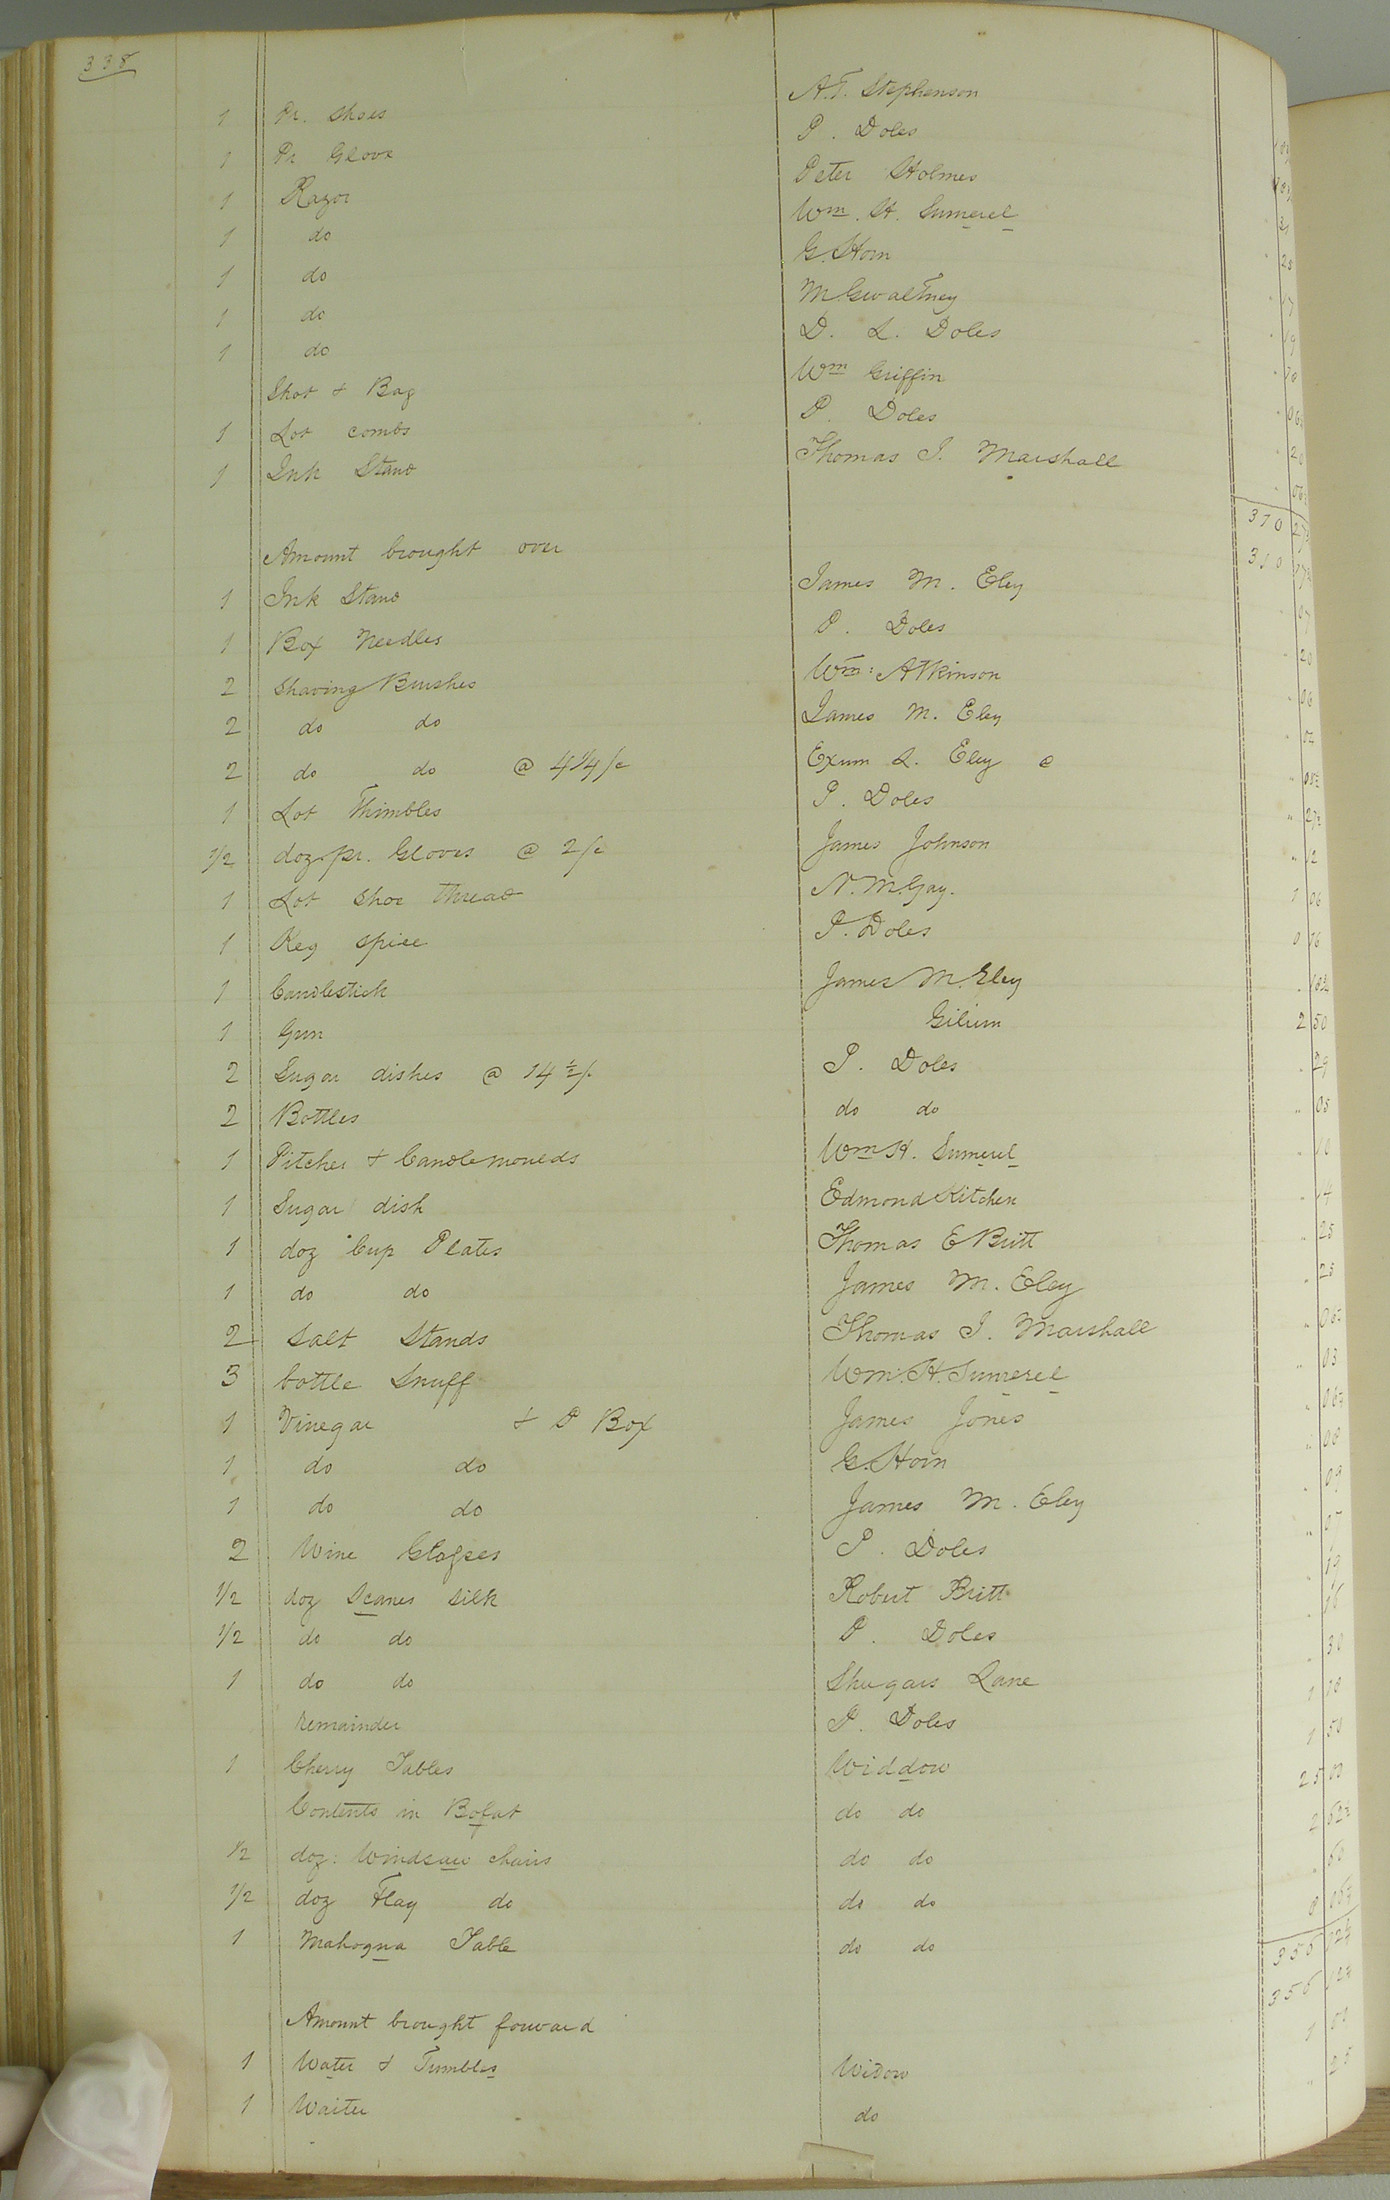 338
1 Pr. Shoes A.T. Stephenson
1 Pr Glove P. Doles
1 Razor Peter Holmes
1 do Wm. H. Sumerel
1 do G. Horn 25
1 do M Gwaltney 17
1 do D. L. Doles 19
Shot & Bag Wm Griffin
1 Lot combs P. Doles
1 Ink Stand Thomas J. Marshall 20
310
Amount brought over 310
1 Ink Stand James M. Eley 07
1 Box Needles P. Doles 20
2 Shaving Brushes Wm: Atkinson 06
2 do do James M. Eley
2 do do @ 4 1/4 /c Exum L. Eley
1 Lot Thimbles P. Doles
1/2 doz pr. Gloves @ 2/c James Johnson 12
1 Lot Shoe Thread N. M. Gay. 1 06
1 Keg Spice P. Doles
1 Candlestick James M. Eley
1 Gun Gilium 2 50
2 Sugar dishes @ 14 1/2 /. P. Doles 29
2 Bottles do do 05
1 Pitcher & Candlemoueds Wm H. Sumerel 10
1 Sugar dish Edmond Kitchen 14
1 doz Cup Plates Thomas E Britt 25
1 do do James M. Eley 25
2 Salt Stands Thomas J. Marshall
3 bottle Snuff Wm. H. Sumerel 03
1 Vinegar & P Box James Jones
1 do do G. Horn 08
1 do do James M. Eley 09
2 Wine Glasses P. Doles 07
1/2 doz Scanes silk Robert Britt 19
1/2 do do P. Doles 16
1 do do Shugars Lane 30
Remainder P. Doles
1 Cherry Tables Widdow 1 50
Contents in Bofat do do 25 00
1/2 doz. Windsaw chairs do do
1/2 doz Flag do do do
1 Mahogna Table do do
356
356
Amount brought forward
1 Water & Tumbles Widow
1 Waiter do